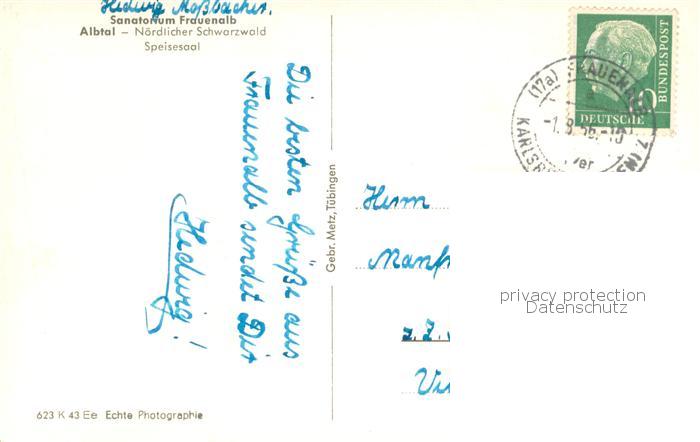 Hedwig Moßbacher.
Sanatorium Frauenalb
Albtal – Nördlicher Schwarzwald
Speisesaal
Die besten Grüße aus
Frauenalb sendet Dir
Hedwig!
Gebr. Metz, Tübingen
623 K 43 Ee Echte Photographie
DEUTSCHE
BUNDESPOST
10
(17a) FRAUENALB
-1.8.56.-10
KARLSR
Herrn
Manf
z.Z.
privacy protection
Datenschutz